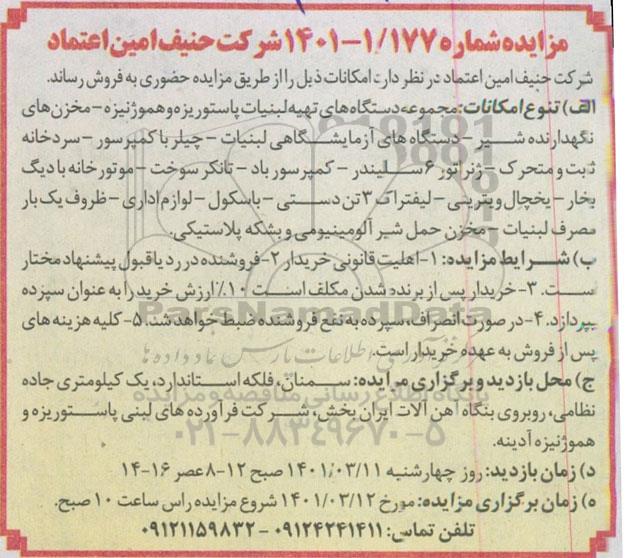 مزایده شماره ۱/۱۷۷-۱۴۰۱ شرکت حنیف امین اعتماد
شرکت حنیف امین اعتماد در نظر دارد امکانات ذیل را از طریق مزایده حضوری به فروش رساند.
الف) تنوع امکانات: مجموعه دستگاه‌های تهیه لبنیات پاستوریزه و هموژنیزه - مخزن‌های
نگهدارنده شیر - دستگاه های آزمایشگاهی لبنیات - چیلر با کمپرسور - سردخانه
ثابت و متحرک - ژنراتور ۶ سلیندر - کمپرسور باد - تانکر سوخت - موتورخانه با دیگ
بخار - یخچال ویترینی - لیفتراک ۳ تن دستی - باسکول - لوازم اداری - ظروف یک بار
مصرف لبنیات - مخزن حمل شیر آلومینیومی و بشکه پلاستیکی.
ب) شرایط مزایده: ۱- اهلیت قانونی خریدار ۲- فروشنده در رد یا قبول پیشنهاد مختار
ست. ۳- خریدار پس از برنده شدن مکلف است ۱۰٪ ارزش خرید را به عنوان سپرده
بپردازد. ۴- در صورت انصراف، سپرده به نفع فروشنده ضبط خواهد شد. ۵- کلیه هزینه های
پس از فروش به عهده خریدار است.
ج) محل بازدید و برگزاری مزایده: سمنان، فلکه استاندارد، یک کیلومتری جاده
نظامی، روبروی بنگاه آهن آلات ایران بخش، شرکت فرآورده های لبنی پاستوریزه و
هموژنیزه آدینه.
د) زمان بازدید: روز چهارشنبه ۱۴۰۱/۰۳/۱۱ صبح ۱۲-۸ عصر ۱۶-۱۴
ه) زمان برگزاری مزایده: مورخ ۱۴۰۱/۰۳/۱۲ شروع مزایده راس ساعت ۱۰ صبح.
تلفن تماس: ۰۹۱۲۴۲۴۱۴۱۱ - ۰۹۱۲۱۱۵۹۸۳۲
ParsNamadData
پایگاه اطلاع رسانی مناقصه و مزایده
۰۲۱-۸۸۳۴۹۶۷۰-۵